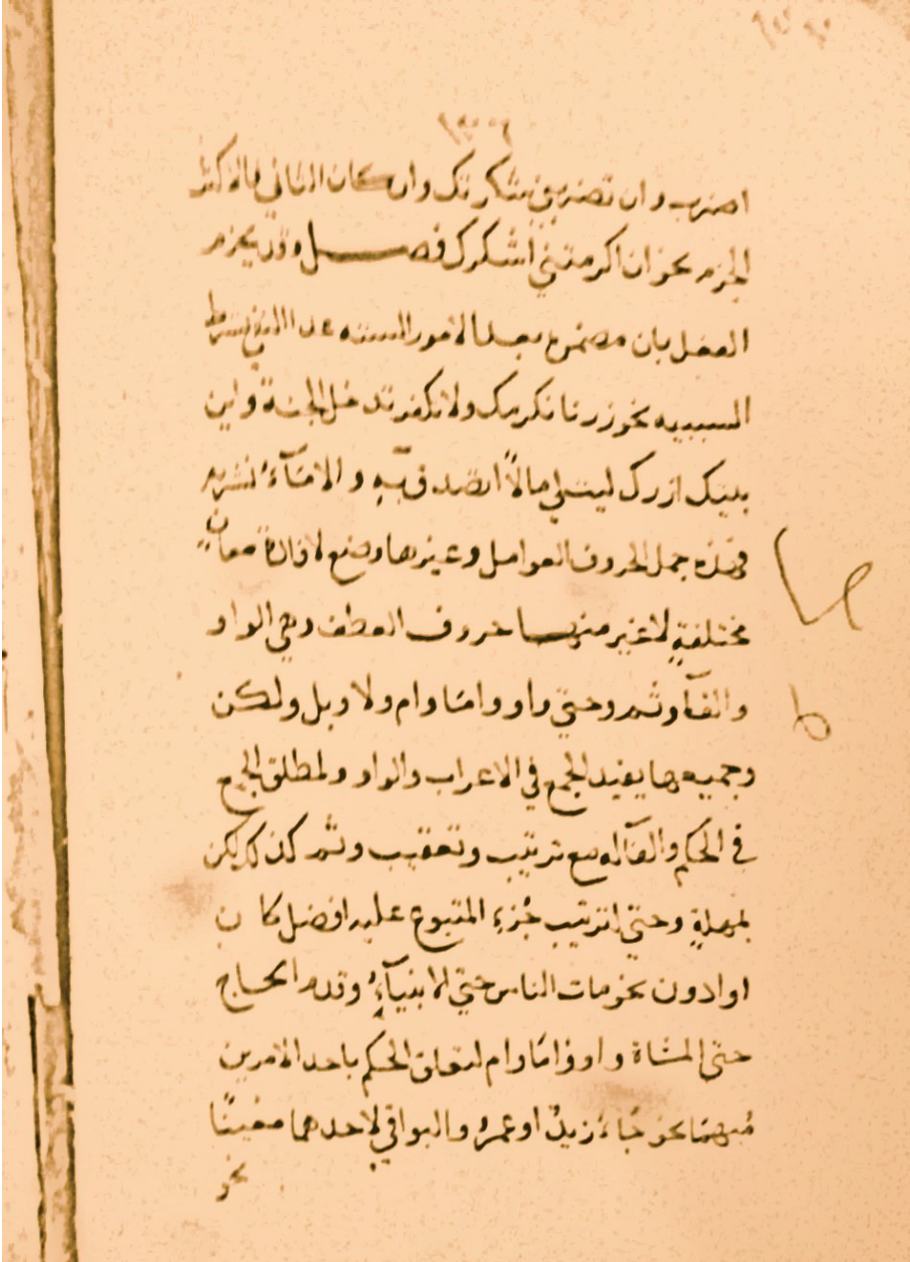 اضرب وان تضربني شكرتك وان كان الثاني فالاكثر
الجزم نحو ان اكرمتني اشكرك فصل وقد يجزم
الفعل بان مضمرة بعد الامور الستة عدا النفي بشرط
السببيه نحو زرنا نكرمك ولا تكفر تدخل الجنة واين
بيتك ازرك ليت لي مالاً اتصدق به و الامثآء نشربه
فهذه جمل الحروف العوامل وغيرها وضع لافادة معانٍ
مختلفةٍ لا غير منها حروف العطف وهي الواو
والفآ وثم وحتي واو واما وام ولا وبل ولكن
وجميعها يفيد الجمع في الاعراب والواو ولمطلق الجمع
في الحكم والفآ له مع ترتيب وتعقيب وثم كذلك لكن
بمهلةٍ وحتي لترتيب جُزءِ المتبوع عليه افضل كان
او ادون نحو مات الناس حتي الانبيآءُ وقدم الحاج
حتي المشاة و او واما وام لتعلق الحكم باحد الامرين
مُبهمًا نحو جَاءَ زيدٌ او عمرٌو والبواقي لاحدهما معينًا
نحو